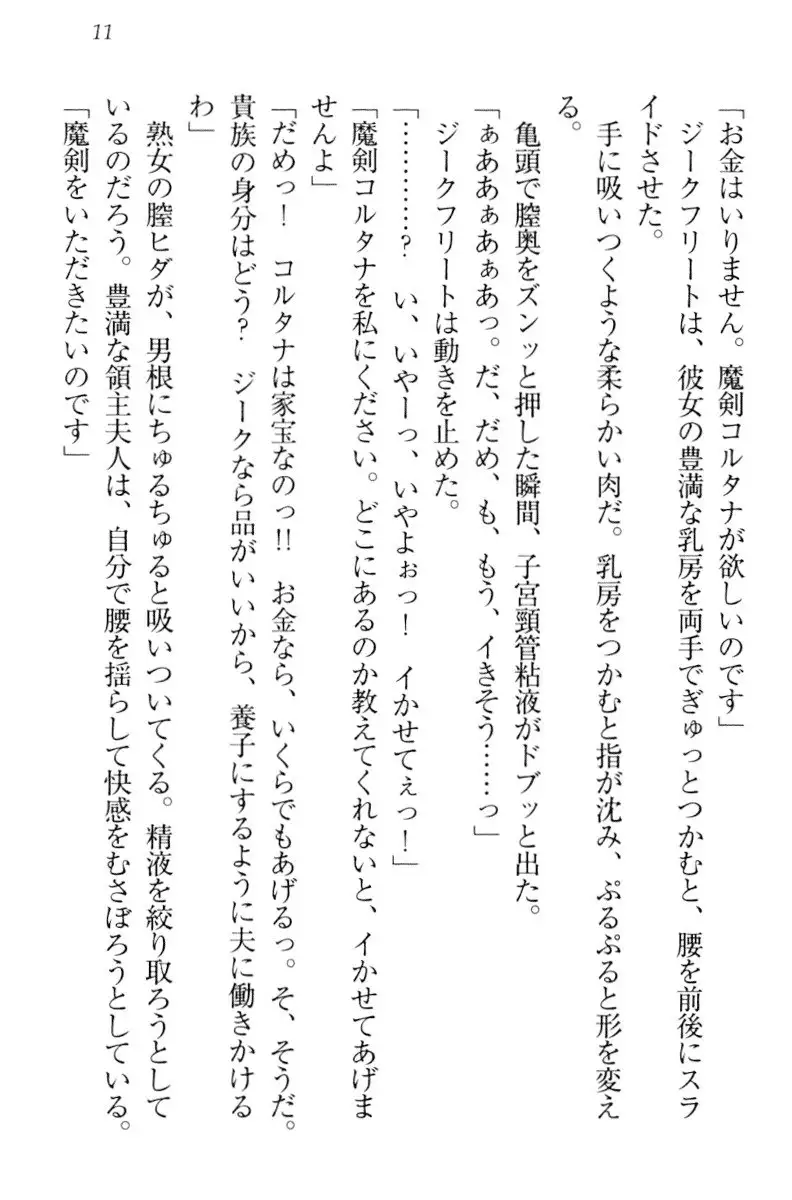 11
「お金はいりません。魔剣コルタナが欲しいのです」
　ジークフリートは、彼女の豊満な乳房を両手でぎゅっとつかむと、腰を前後にスラ
イドさせた。
　手に吸いつくような柔らかい肉だ。乳房をつかむと指が沈み、ぷるぷると形を変え
る。
　亀頭で膣奥をズンッと押した瞬間、子宮頸管粘液がドブッと出た。
「ぁああぁあぁあっ。だ、だめ、も、もう、イきそう……っ」
　ジークフリートは動きを止めた。
「…………?　い、いやーっ、いやよぉっ！　イかせてぇっ！」
「魔剣コルタナを私にください。どこにあるのか教えてくれないと、イかせてあげま
せんよ」
「だめっ！　コルタナは家宝なのっ!!　お金なら、いくらでもあげるっ。そ、そうだ。
貴族の身分はどう?　ジークなら品がいいから、養子にするように夫に働きかける
わ」
　熟女の膣ヒダが、男根にちゅるちゅると吸いついてくる。精液を絞り取ろうとして
いるのだろう。豊満な領主夫人は、自分で腰を揺らして快感をむさぼろうとしている。
「魔剣をいただきたいのです」